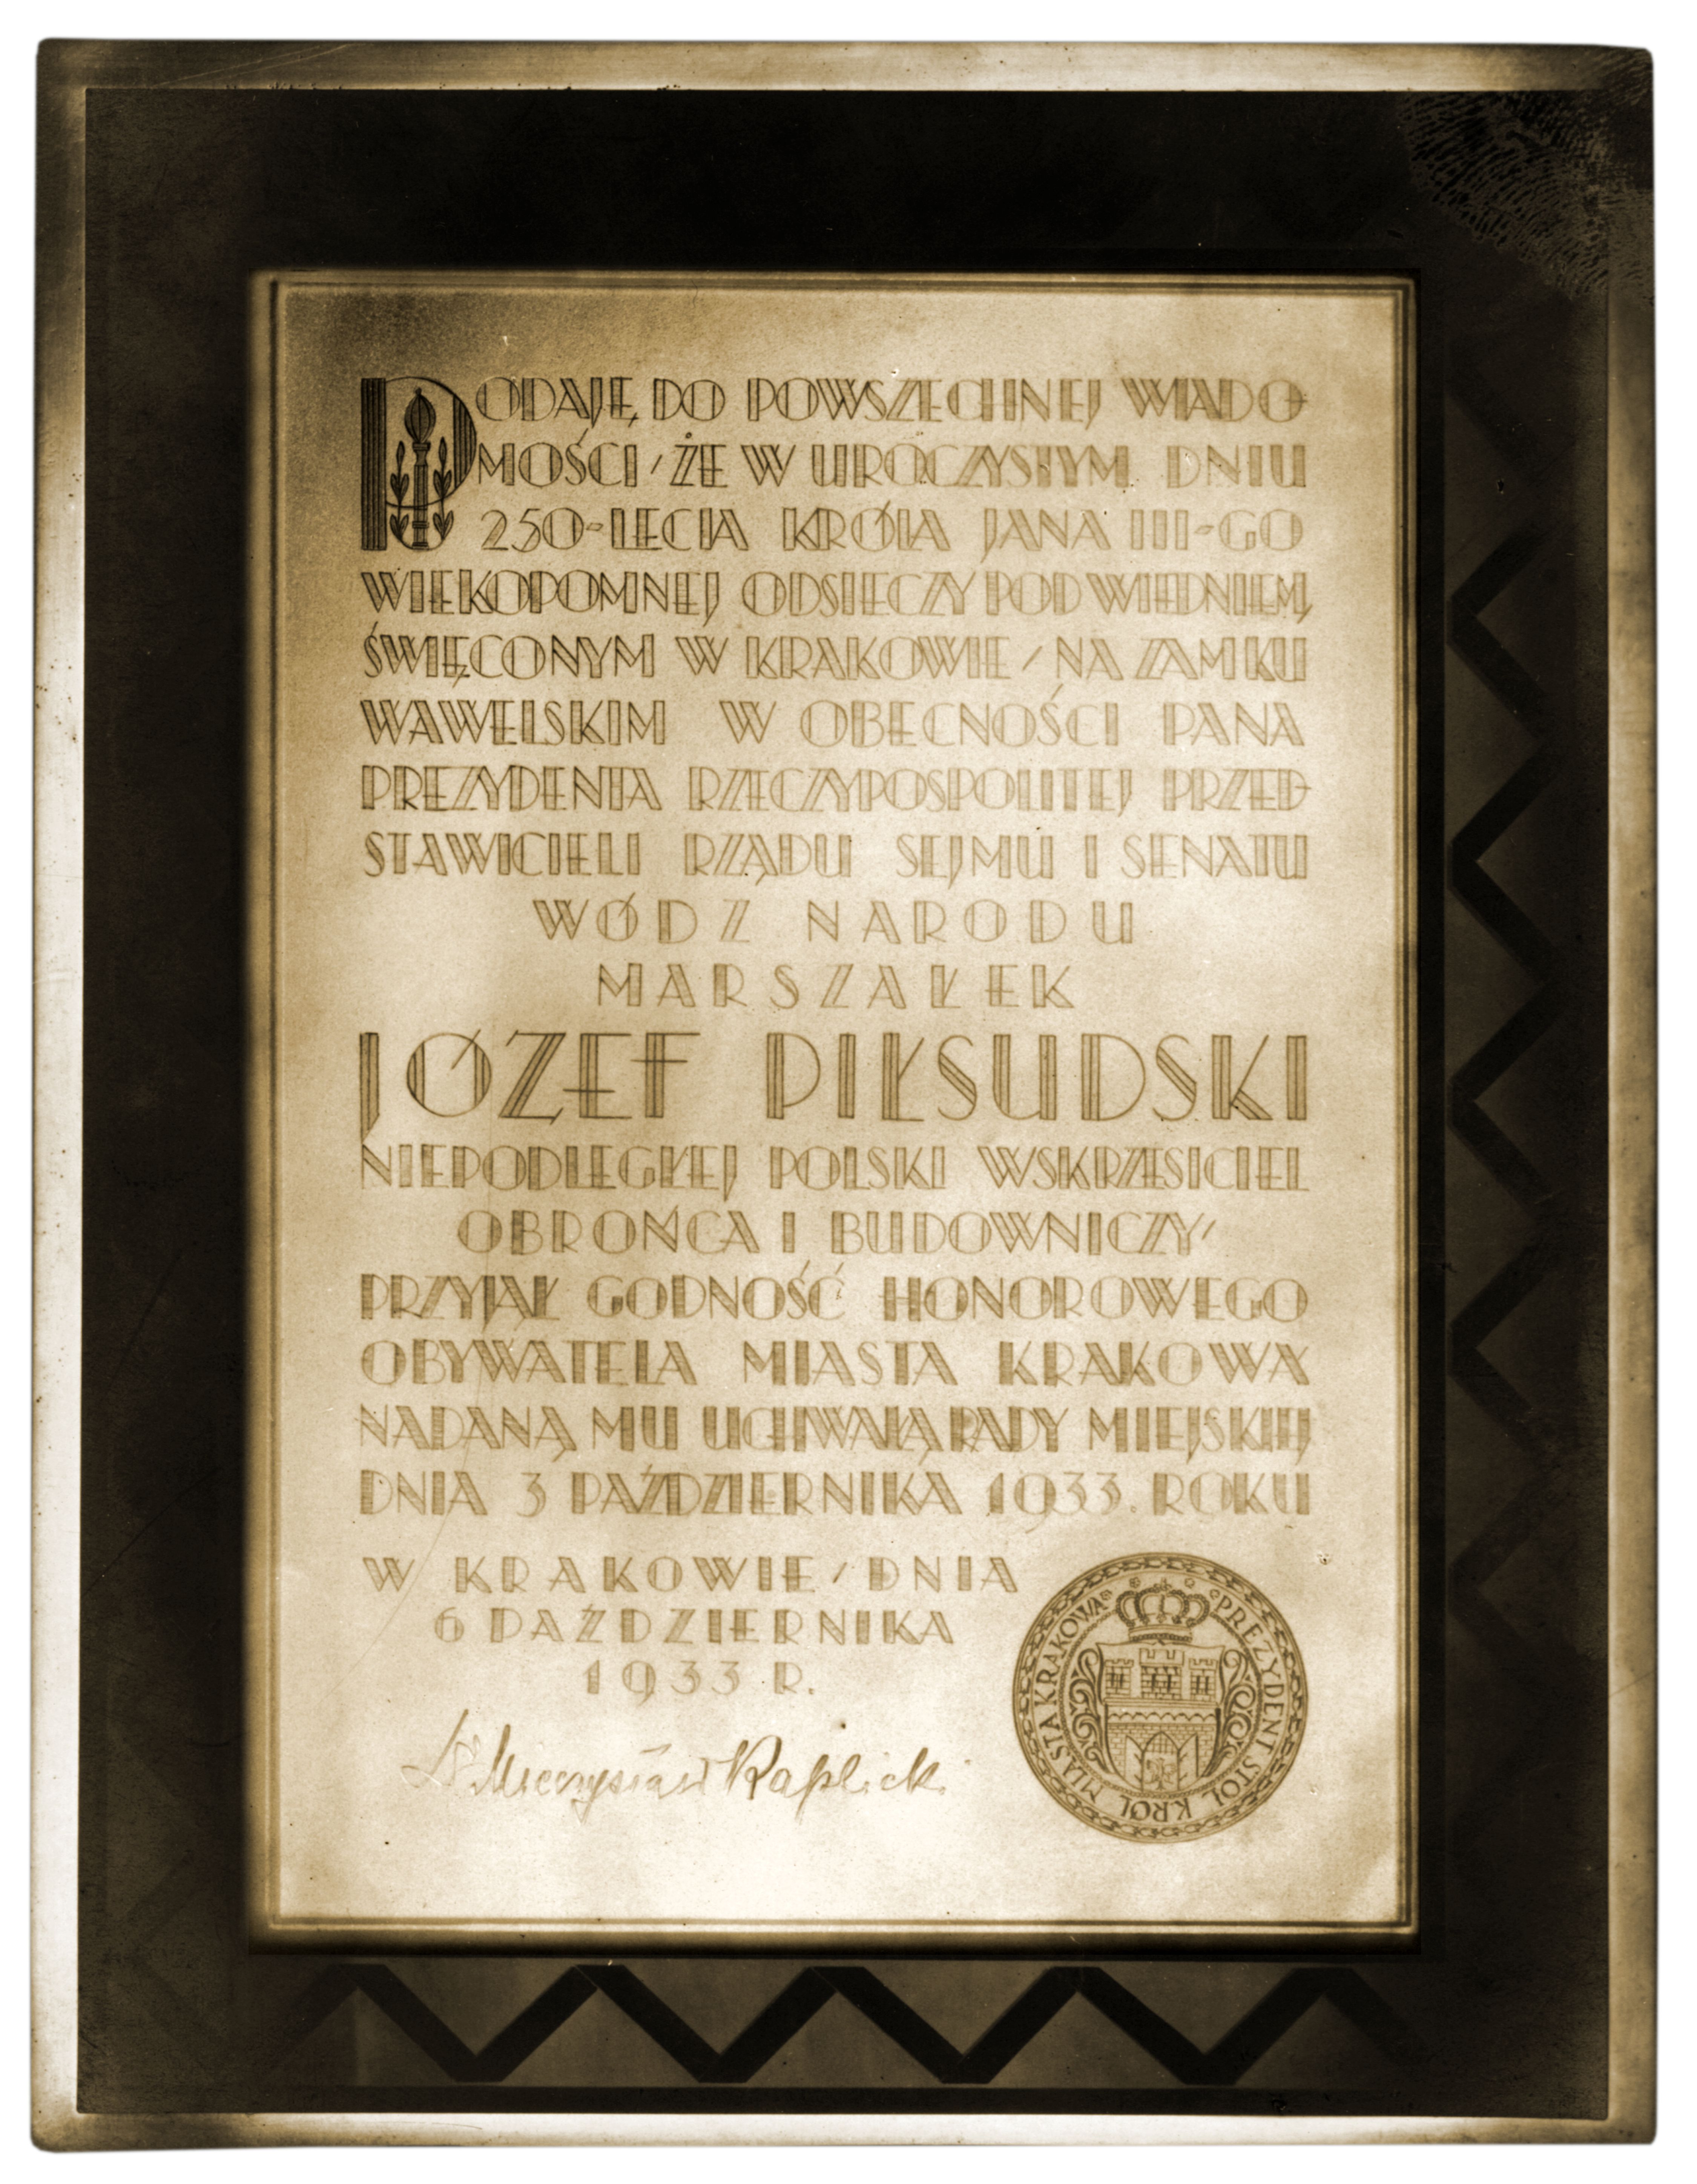 PODAJĘ DO POWSZECHNEJ WIADO-
MOŚCI, ŻE W UROCZYSTYM DNIU
250-LECIA KRÓLA JANA III-GO
WIEKOPOMNEJ ODSIECZY POD WIEDNIEM,
ŚWIĘCONYM W KRAKOWIE, NA ZAMKU
WAWELSKIM W OBECNOŚCI PANA
PREZYDENTA RZECZYPOSPOLITEJ PRZED-
STAWICIELI RZĄDU SEJMU I SENATU
WÓDZ NARODU
MARSZAŁEK
JÓZEF PIŁSUDSKI
NIEPODLEGŁEJ POLSKI WSKRZESICIEL
OBROŃCA I BUDOWNICZY,
PRZYJĄŁ GODNOŚĆ HONOROWEGO
OBYWATELA MIASTA KRAKOWA
NADANĄ MU UCHWAŁĄ RADY MIEJSKIEJ
DNIA 3 PAŹDZIERNIKA 1933. ROKU
W KRAKOWIE, DNIA
6 PAŹDZIERNIKA
1933 R.
Dr Mieczysław Kaplicki
PREZYDENT STOŁ. KRÓL. MIASTA KRAKOWA